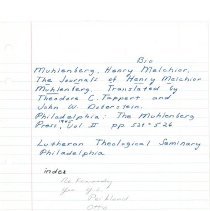 Bio
Muhlenberg, Henry Melchior.
The Journals of Henry Melchior
Muhlenberg. Translated by
Theodore G. Tappert and
John W. Doberstein.
Philadelphia: The Muhlenberg
Press, 1945 Vol II pp. 521-526
Lutheran Theological Seminary
Philadelphia
index